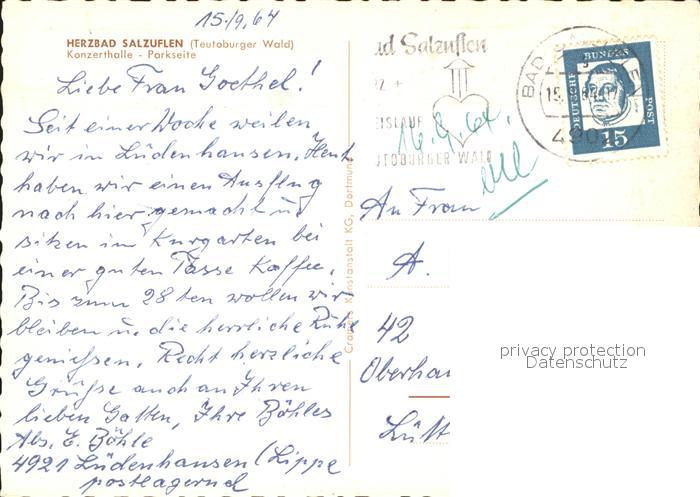 15./9.64
HERZBAD SALZUFLEN (Teutoburger Wald)
Konzerthalle - Parkseite
Liebe Frau Goethel!
Seit einer Woche weilen
wir in Lüdenhausen. Heut
haben wir einen Ausflug
nach hier gemacht u
sitzen im Kurgarten bei
einer guten Tasse Kaffee.
Bis zum 28ten wollen wir
bleiben u. die herrliche Ruhe
genießen. Recht herzliche
Grüße auch an Ihren
lieben Gatten, Ihre Böhles
Abs. E. Böhle
4921 Lüdenhausen (Lippe
postlagernd
Cramers Kunstanstalt KG, Dortmund
ad Salzuflen
EISLAUF
UTOBURGER WALD
BAD
15.
490
DEUTSCHE BUNDES POST
15
16.9.64.
An Frau
A.
42
Oberhau
Lütt
privacy protection
Datenschutz